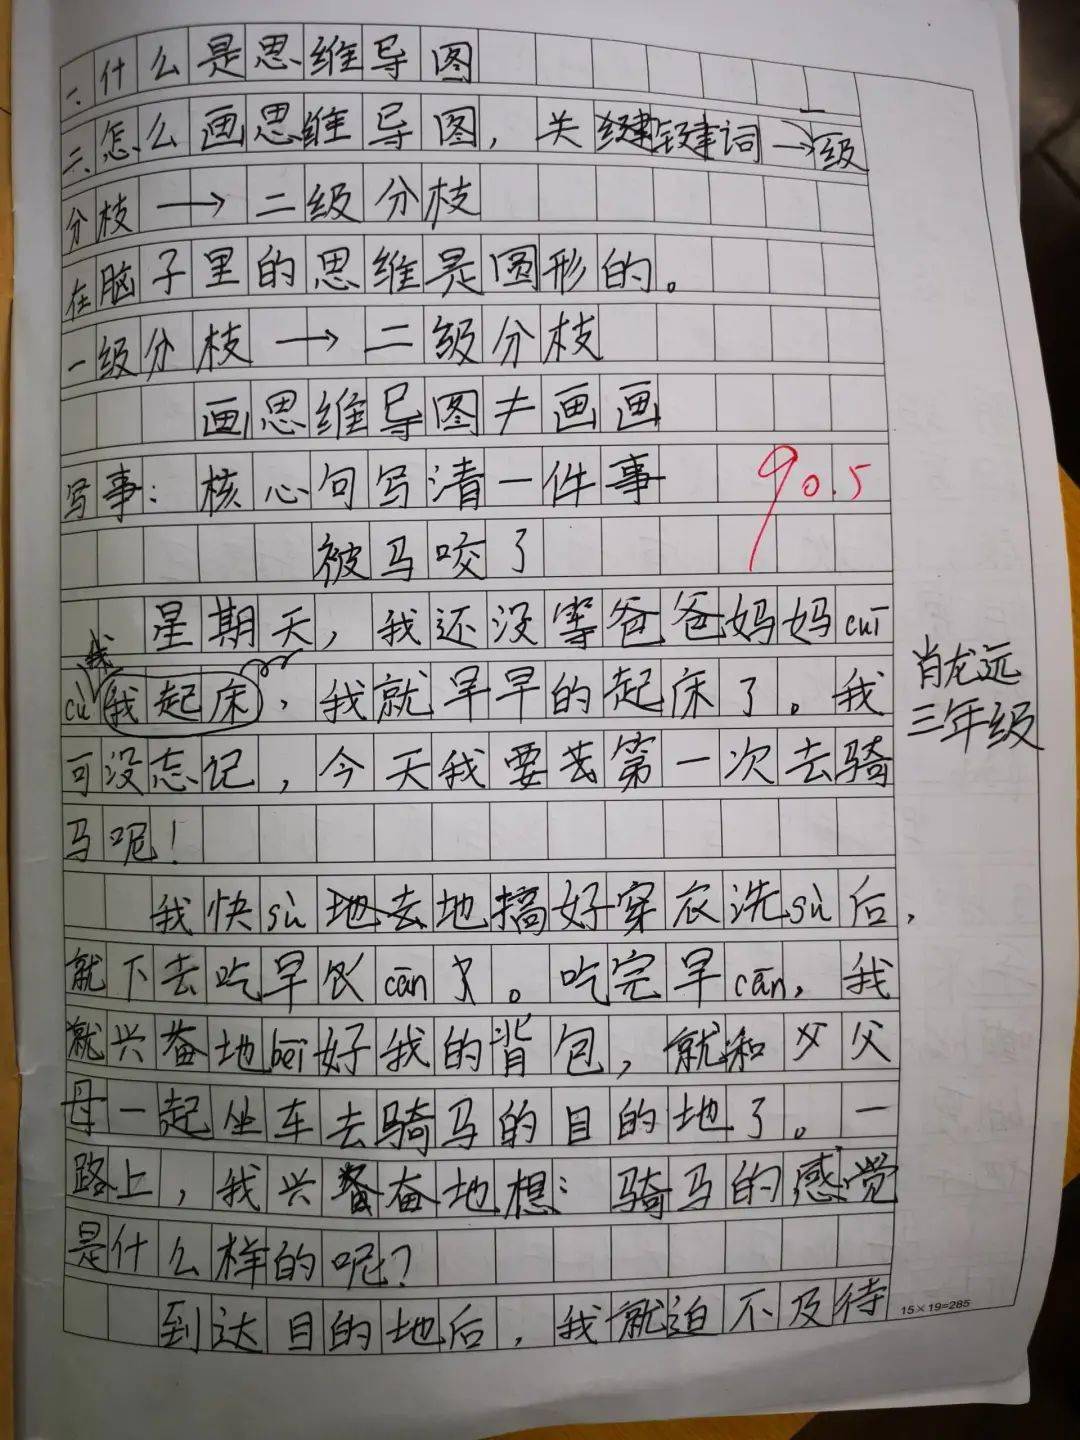 一、什么是思维导图
二、怎么画思维导图，关键键词→一级
分枝→二级分枝
在脑子里的思维是图形的。
一级分枝→二级分枝
画思维导图≠画画
写事：核心句写清一件事
90.5
被马咬了
星期天，我还没等爸爸妈妈cuī
cù我起床，我就早早的起床了。我
肖龙远
三年级
可没忘记，今天我要去第一次去骑
马呢！
我快sù地去地搞好穿衣洗sù后，
就下去吃早cān了。吃完早cān，我
就兴奋地bēi好我的背包，就和父父
母一起坐车去骑马的目的地了。一
路上，我兴奋地想：骑马的感觉
是什么样的呢？
到达目的地后，我就迫不及待
15×19=285